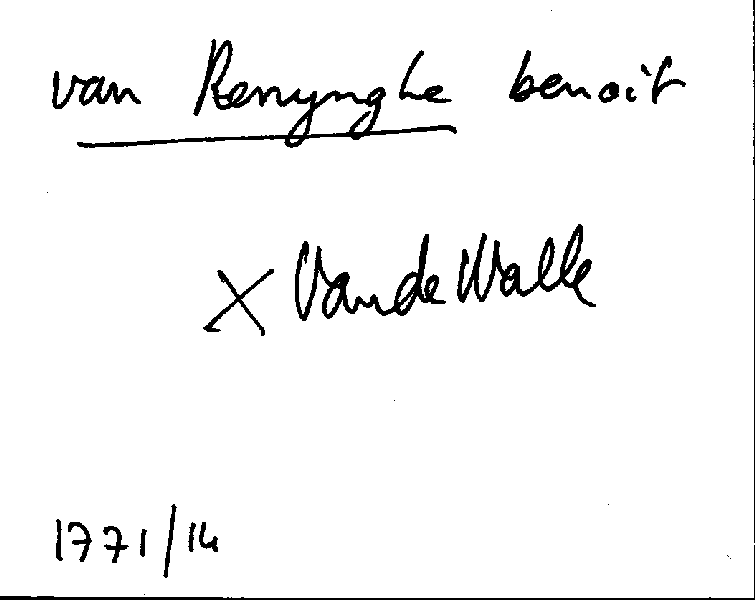 van Renynghe benoit
X Van de Walle
1771/14